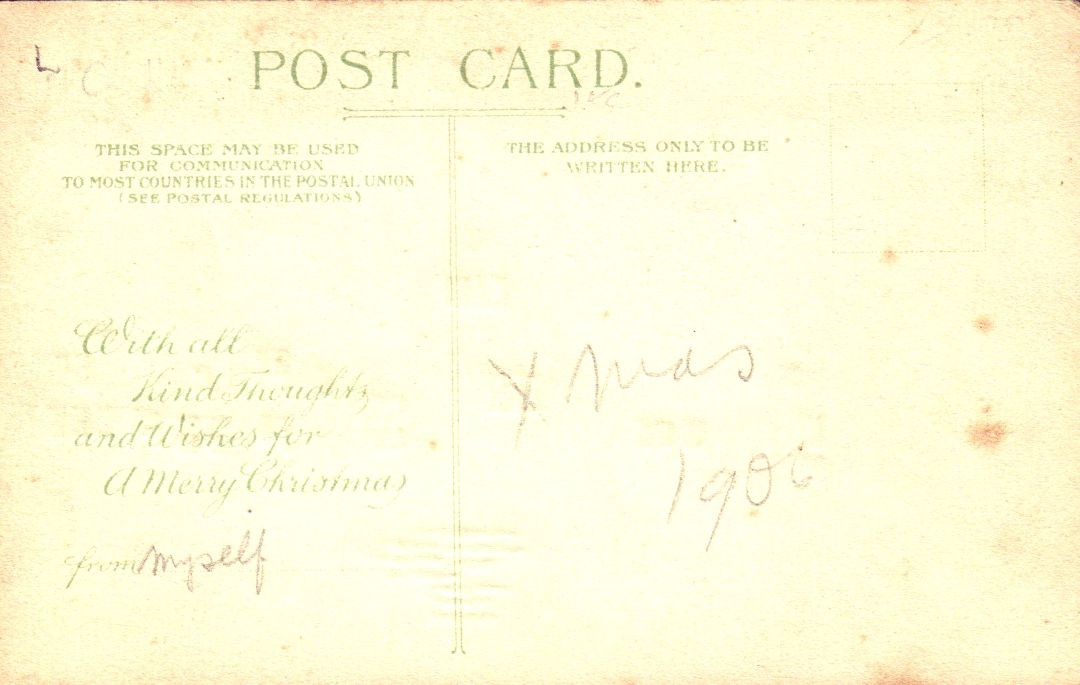 L
POST CARD.
THIS SPACE MAY BE USED
FOR COMMUNICATION
TO MOST COUNTRIES IN THE POSTAL UNION
(SEE POSTAL REGULATIONS)
THE ADDRESS ONLY TO BE
WRITTEN HERE.
With all
Kind Thoughts
and Wishes for
A Merry Christmas
from myself
Xmas
1906